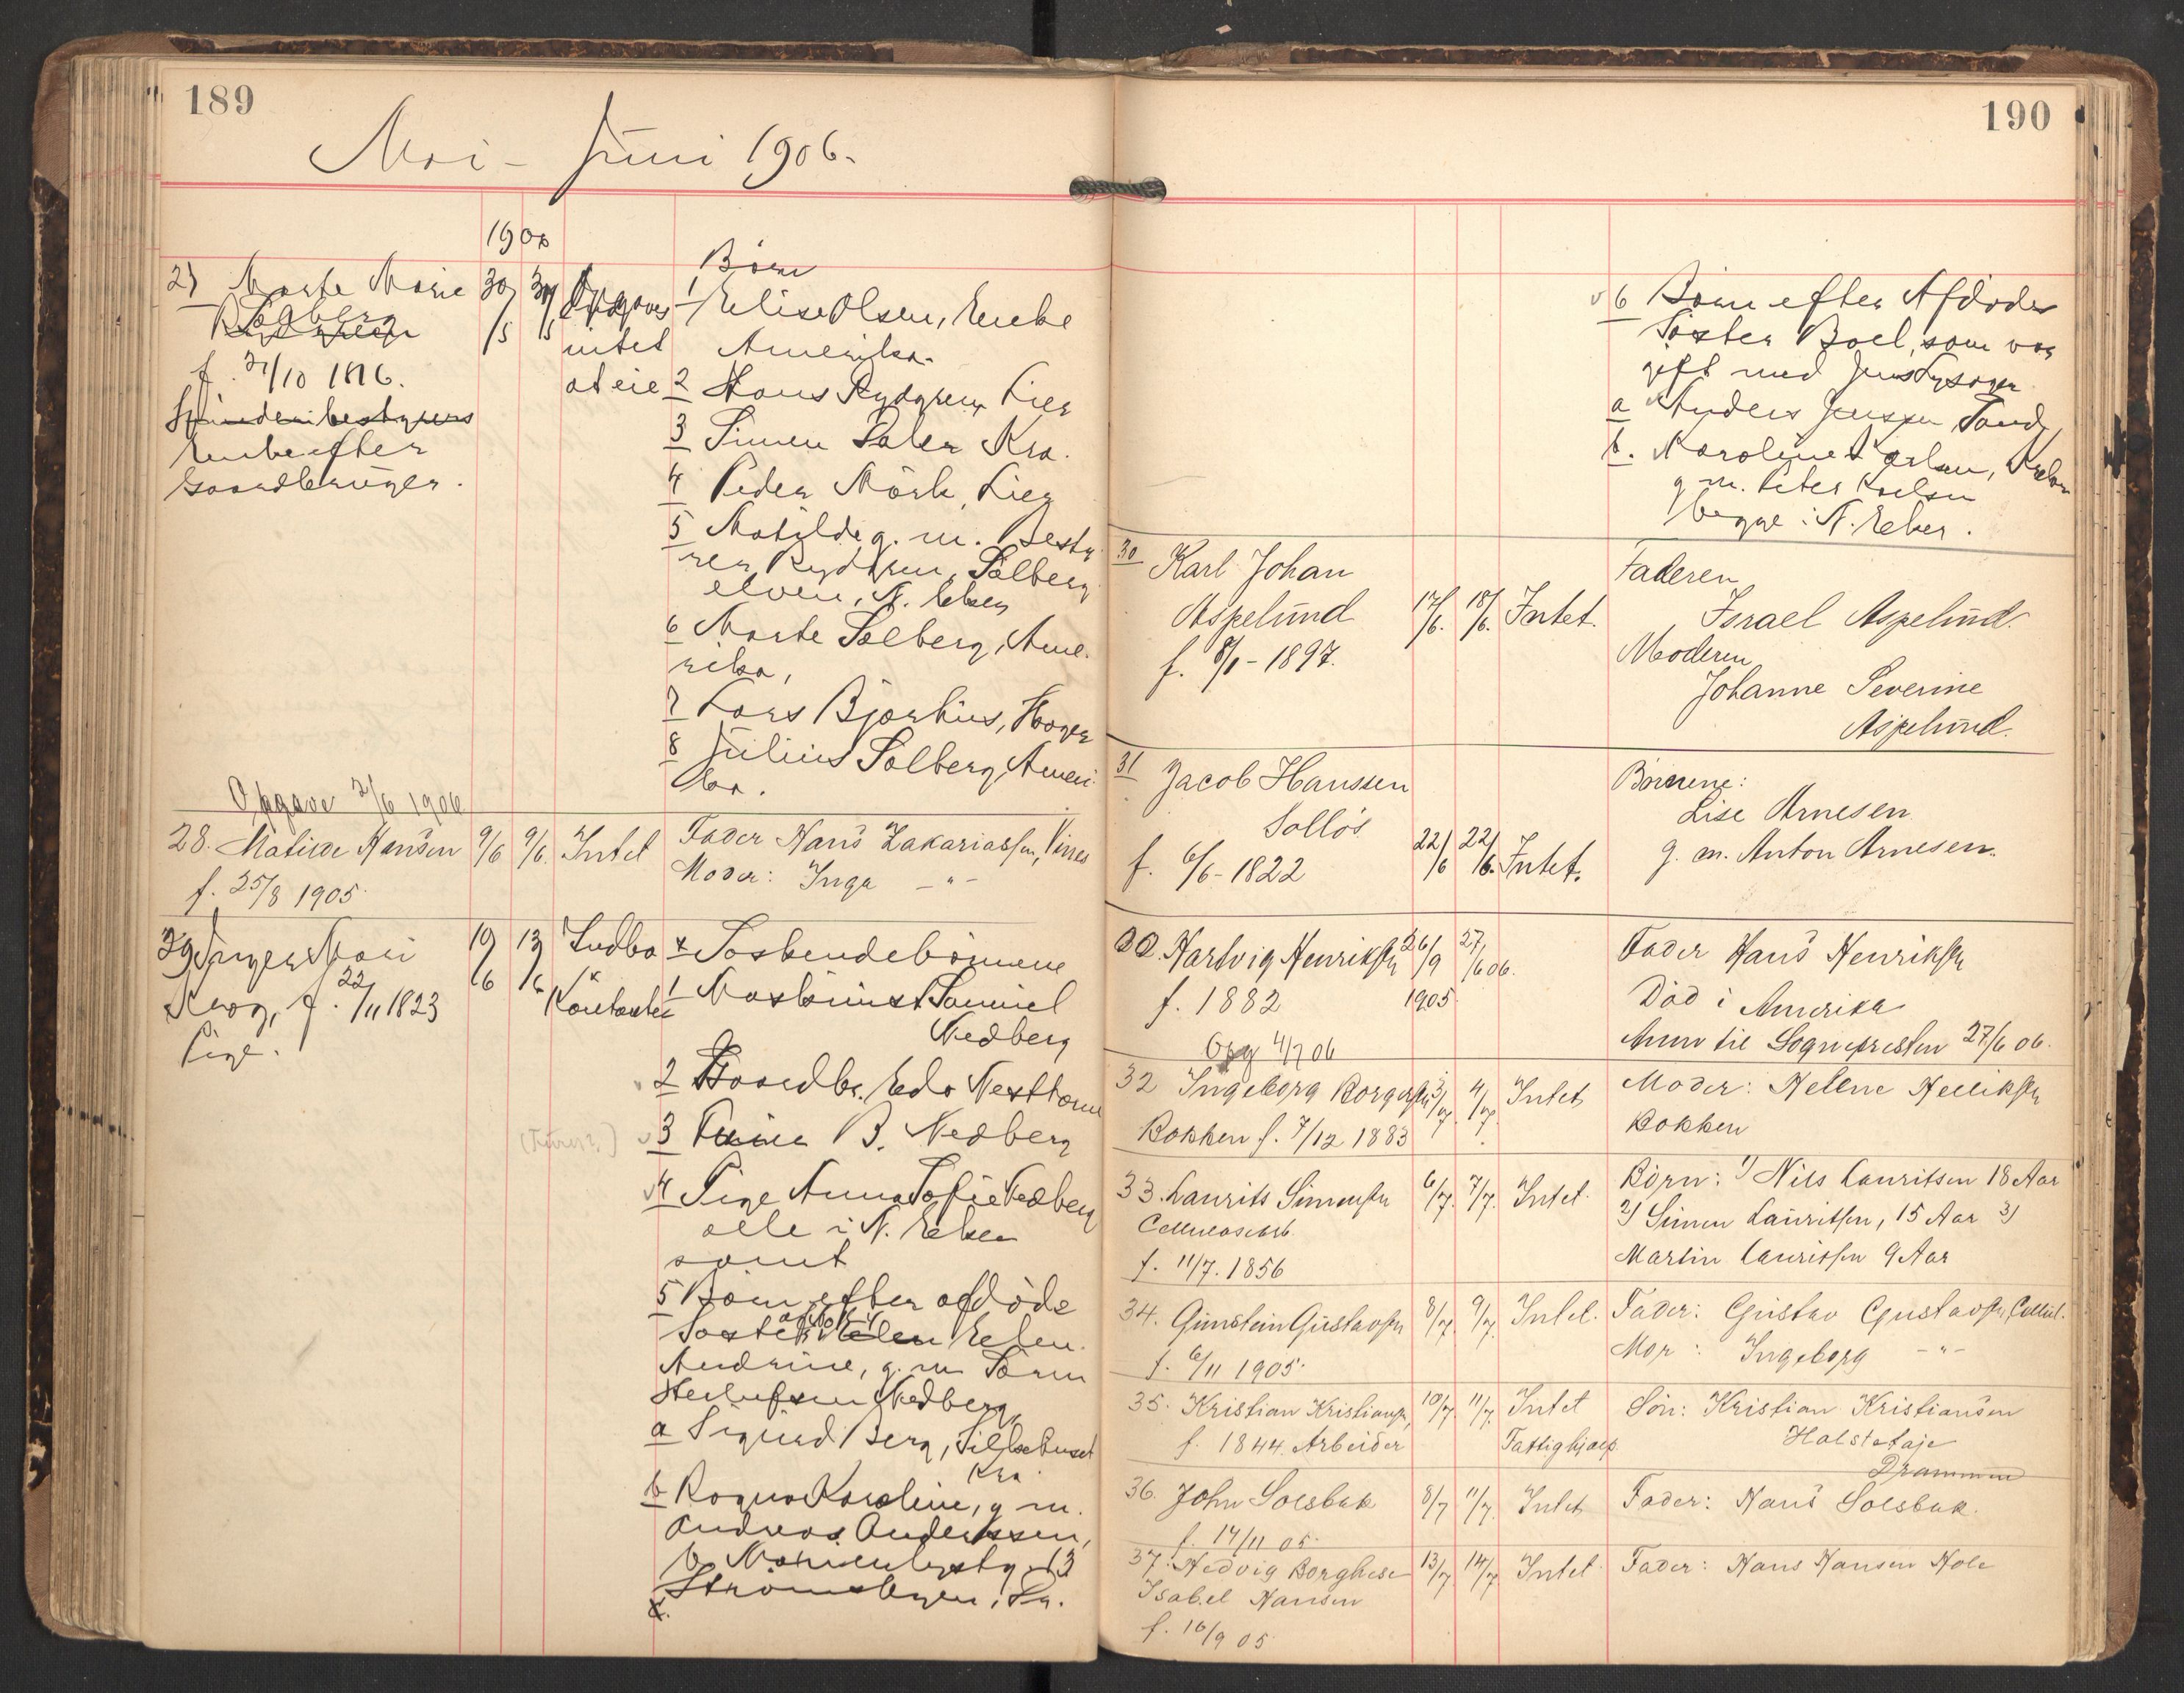 189
Mai - Juni 1906.
1906
27 Marte Marie
Solberg
f. 21/10 1816.
Enke efter
Gaardbruger.
30/5 30/5
Opgaves
intet
at eie
Børn
1 Elise Olsen, Enke
Amerika.
2 Hans Rydgren, Lier
3 Simen Kra.
4 Peder Mörk, Lier
5 Matilde g. m. Besty-
rer Rydgren, Solberg
elven, N. Eker
6 Marte Solberg, Ame-
rika,
7 Lars Bjorkius,
8 Julius Solberg, Ameri-
ka.
Opgave 2/6 1906
28. Matilde Hansen 9/6 9/6. Intet Fader Hans Zakariassen,
f. 25/8 1905. Moder: Inga - " -
29 Inger Mari
f. 22/11 1823
Pige.
10/6 13/6
Indbo
&
Kontanter
Søskendebørnene
1 Maskinist Samuel
Nedberg
2 Gaardbr. Edv
3 B. Nedberg
4 Pige Anna Sofie Nedberg
alle i N. Eker
samt
5 Børn efter afdøde
Søster Elen
Andrine, g. m. Søren
Nedberg,
a Sigurd Berg,
Kra.
b Ragna Karoline, g m.
Andreas Anderssen,
13
190
6 Børn efter Afdødes
Søster Boel, som var
gift med Jens
a Anders Jenssen
b. Karoline
g m. Peter
begge i N. Eker.
30 Karl Johan
Aspelund
f. 8/1 - 1897.
17/6. 18/6. Intet.
Faderen
Israel Aspelund.
Moderen
Johanne Severine
Aspelund.
31 Jacob Hanssen
Solløs
f. 6/6 - 1822
22/6 22/6. Intet.
Børnene:
Lise Arnesen
g. m. Anton Arnesen.
Hartvig Henriksen
f. 1882
26/9 1905 27/6 06.
Fader Hans Henriksen
Død i Amerika
Anm til Sognepresten 27/6 06.
Opg 4/7 06
32 Ingeborg Borgersen 3/7 4/7 Intet
Bokken f. 7/12 1883
Moder: Helene
Bokken
33. Laurits Simensen 6/7. 7/7. Intet.
Cellulosearb.
f. 11/7. 1856
Børn: 1) Nils Lauritsen 18 Aar
2) Simen Lauritsen, 15 Aar 3)
Martin Lauritsen 9 Aar
34. Gunstein Gustavsen 8/7. 9/7. Intet. Fader: Gustav Gustavsen, Cellul.
f. 6/11 1905. Mor: Ingeborg - " -
35. Kristian Kristiansen, 10/7. 11/7. Intet Søn: Kristian Kristiansen
f. 1844. Arbeider Fattighjælp.
Drammen
36. John Solsbak 8/7 11/7. Intet Fader: Hans Solsbak.
f. 14/11 05.
37. Hedvig Borghese 13/7 14/7. Intet. Fader: Hans Hansen Hole
Isabel Hansen
f. 16/9 05